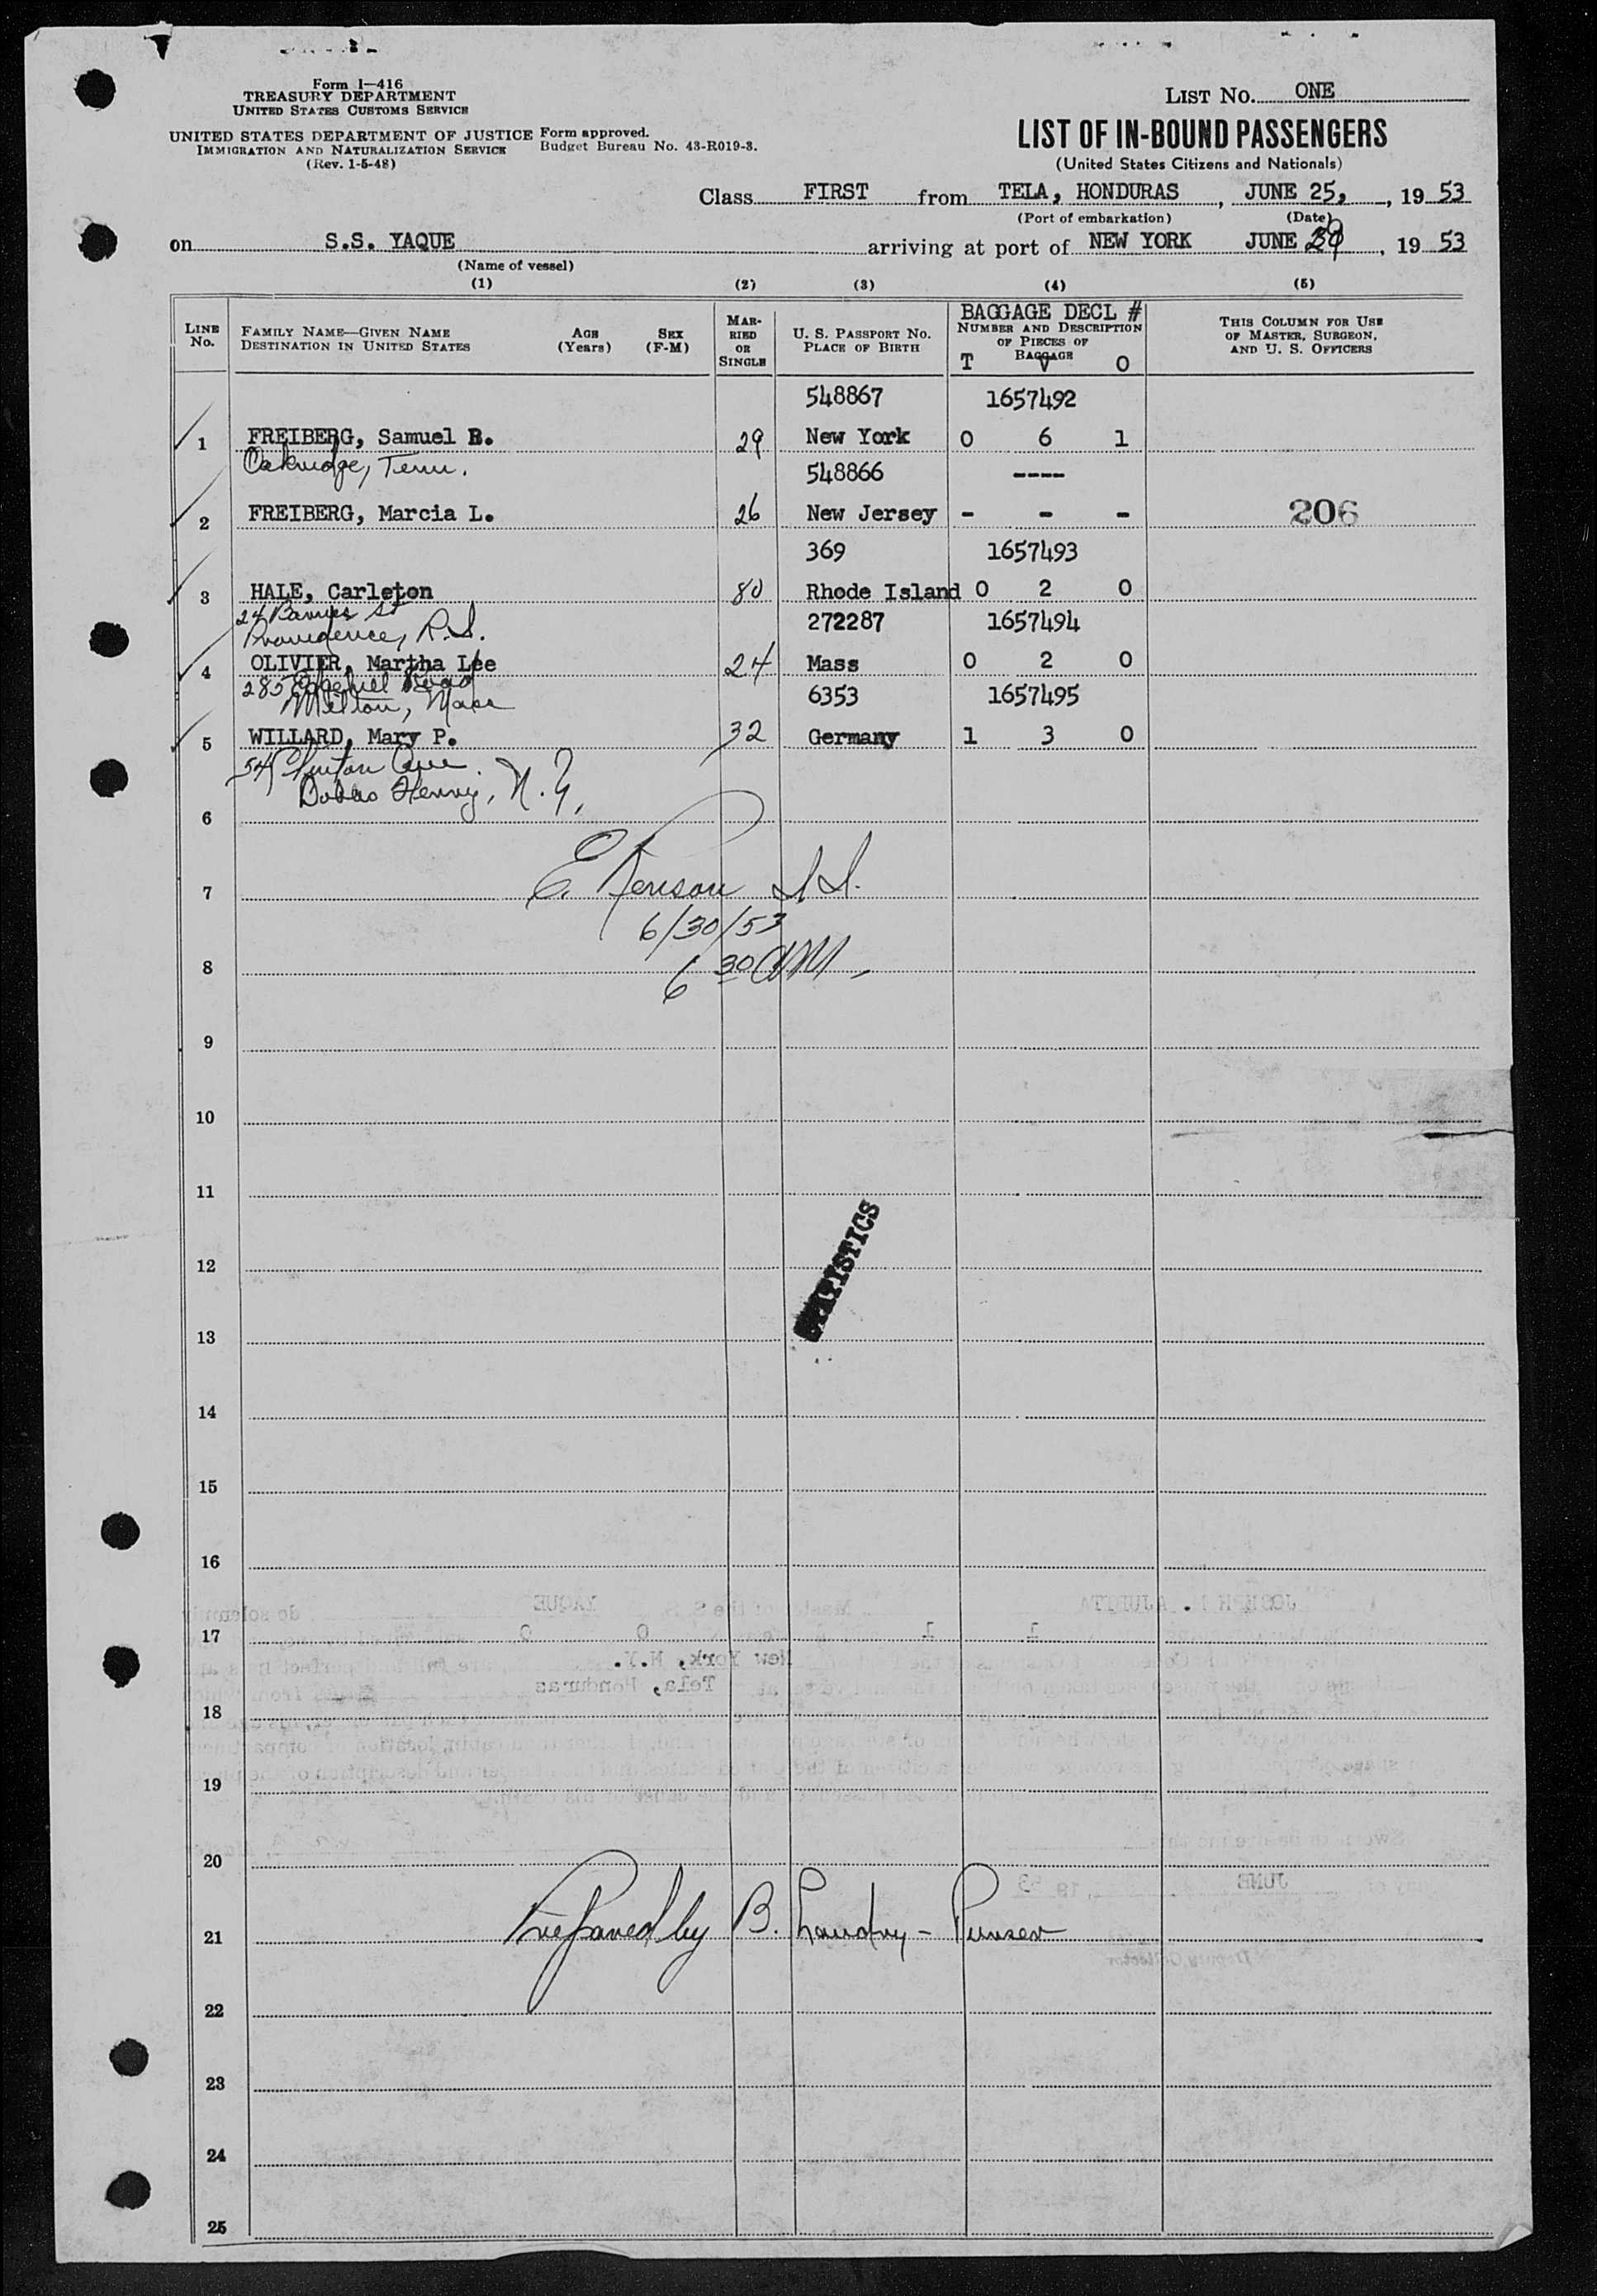 Form I-416
TREASURY DEPARTMENT
UNITED STATES CUSTOMS SERVICE
UNITED STATES DEPARTMENT OF JUSTICE
IMMIGRATION AND NATURALIZATION SERVICE
(Rev. 1-5-48)
Form approved.
Budget Bureau No. 43-R019-3.
LIST NO. ONE
LIST OF IN-BOUND PASSENGERS
(United States Citizens and Nationals)
Class FIRST from TELA, HONDURAS, JUNE 25, 19 53
(Port of embarkation) (Date)
on S.S. YAQUE arriving at port of NEW YORK JUNE 19 53
(Name of vessel)
(1) (2) (3) (4) (5)
LINE NO.
FAMILY NAME—GIVEN NAME
DESTINATION IN UNITED STATES
AGE (Years)
SEX (F-M)
MARRIED OR SINGLE
U. S. PASSPORT NO.
PLACE OF BIRTH
BAGGAGE DECL #
NUMBER AND DESCRIPTION
OF PIECES OF
BAGGAGE
T V O
THIS COLUMN FOR USE
OF MASTER, SURGEON,
AND U. S. OFFICERS
548867 1657492
1 FREIBERG, Samuel R. 29 New York 0 6 1
Oakridge, Tenn.
548866 ----
2 FREIBERG, Marcia L. 26 New Jersey - - - 206
369 1657493
3 HALE, Carleton 80 Rhode Island 0 2 0
24 Barnes St
Providence, R.I.
272287 1657494
4 OLIVIER, Martha Lee 24 Mass 0 2 0
285 Edgehill Road
Milton, Mass
6353 1657495
5 WILLARD, Mary P. 32 Germany 1 3 0
54 Clinton Ave.
Dobbs Ferry, N.Y.
6
7
E. I.I.
6/30/53
8
6 30 AM
9
10
11
12
STATISTICS
13
14
15
16
17
18
19
20
21 Prepared by B. Landry - Purser
22
23
24
25